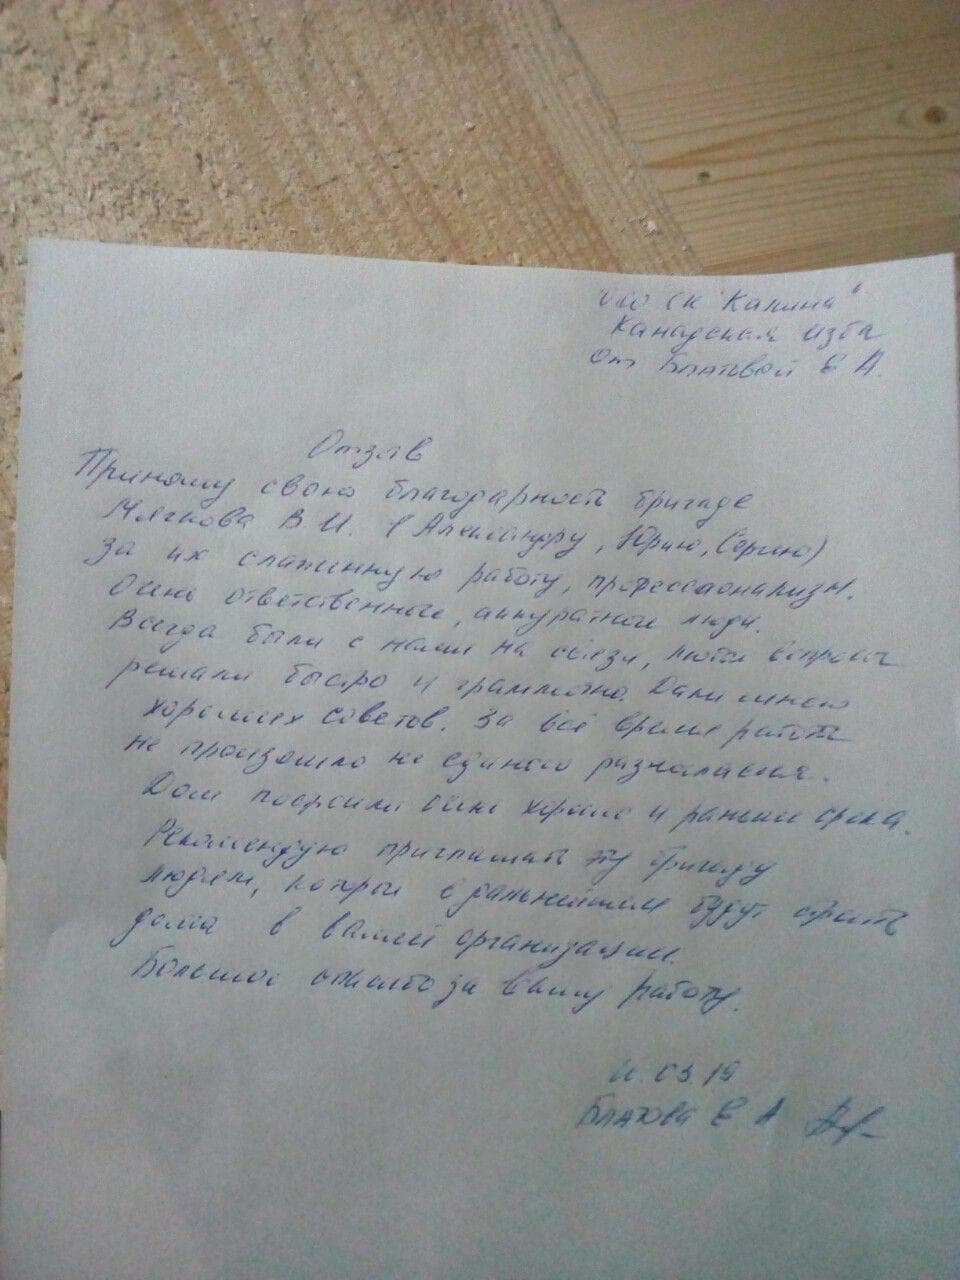 ООО СК "Калина"
Канадская изба
От Блатовой Е А.
Отзыв
Приношу свою благодарность бригаде
Мягкова В И. (Александру, Юрию, Сергею)
за их слаженную работу, профессионализм.
Очень ответственные, аккуратные люди.
Всегда были с нами на связи, любые вопросы
решали быстро и грамотно. Дали много
хороших советов. За всё время работы
не произошло не единого разногласия.
Дом построили очень хорошо и раньше срока.
Рекомендую приглашать эту бригаду
людям, которые в дальнейшем будут строить
дома в вашей организации.
Большое спасибо за вашу работу.
03.19
Е А